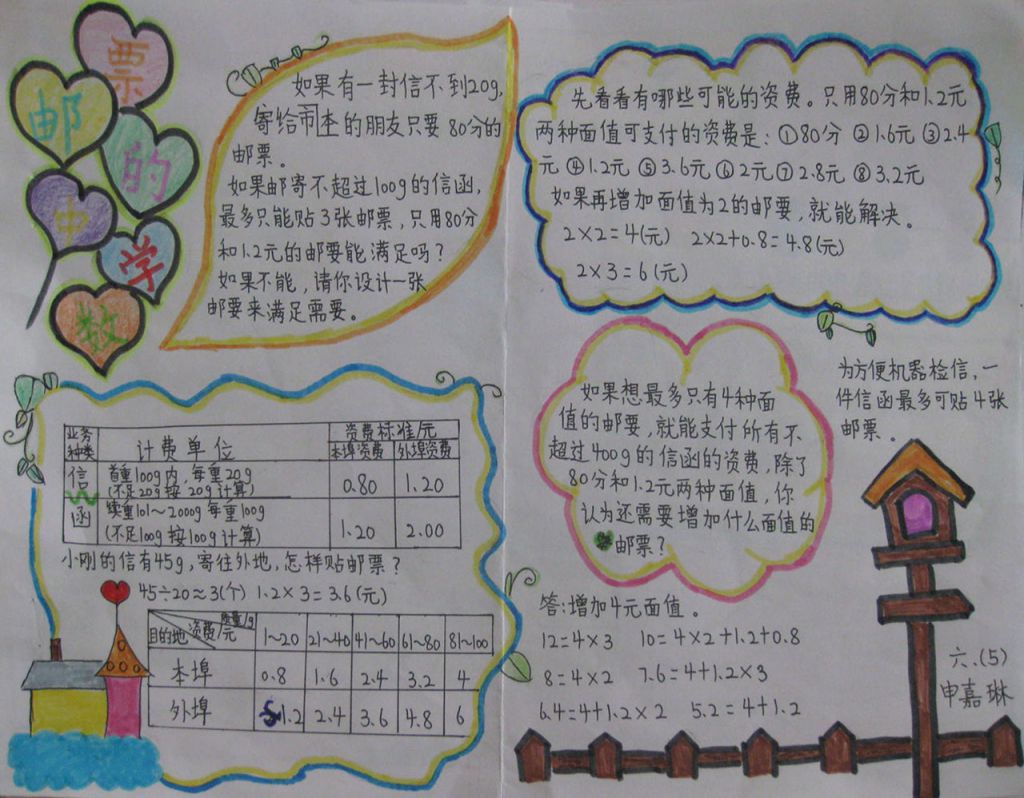 邮票
的
中
学
数
如果有一封信不到20g,
寄给本市的朋友只要80分的
邮票。
如果邮寄不超过100g的信函,
最多只能贴3张邮票,只用80分
和1.2元的邮要能满足吗?
如果不能,请你设计一张
邮要来满足需要。
先看看有哪些可能的资费。只用80分和1.2元
两种面值可支付的资费是:①80分 ②1.6元 ③2.4
元 ④1.2元 ⑤3.6元 ⑥2元 ⑦2.8元 ⑧3.2元
如果再增加面值为2的邮要,就能解决。
2×2=4(元) 2×2+0.8=4.8(元)
2×3=6(元)
业务种类 计费单位 资费标准/元
本埠资费 外埠资费
信函 首重100g内,每重20g
(不足20g按20g计算) 0.80 1.20
续重101~2000g每重100g
(不足100g按100g计算) 1.20 2.00
小刚的信有45g,寄往外地,怎样贴邮票?
45÷20≈3(个) 1.2×3=3.6(元)
目的地 资费/元 质量/g 1~20 21~40 41~60 61~80 81~100
本埠 0.8 1.6 2.4 3.2 4
外埠 1.2 2.4 3.6 4.8 6
如果想最多只有4种面
值的邮要,就能支付所有不
超过400g的信函的资费,除了
80分和1.2元两种面值,你
认为还需要增加什么面值的
邮票?
为方便机器检信,一
件信函最多可贴4张
邮票。
答:增加4元面值。
12=4×3 10=4×2+1.2+0.8
8=4×2 7.6=4+1.2×3
6.4=4+1.2×2 5.2=4+1.2
六.(5)
申嘉琳